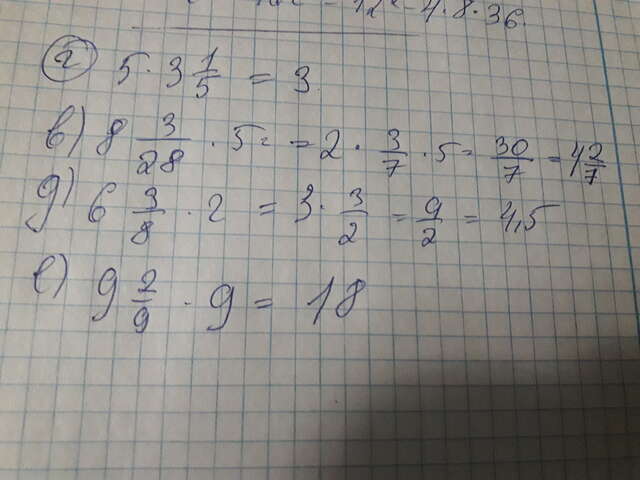 - 12² - 4 · 8 · 36.
г) 5 · 3 1/5 = 3
в) 8 3/28 · 5 = = 2 · 3/7 · 5 = 30/7 = 4 2/7
g) 6 3/8 · 2 = 3 · 3/2 = 9/2 = 4,5
е) 9 2/9 · 9 = 18